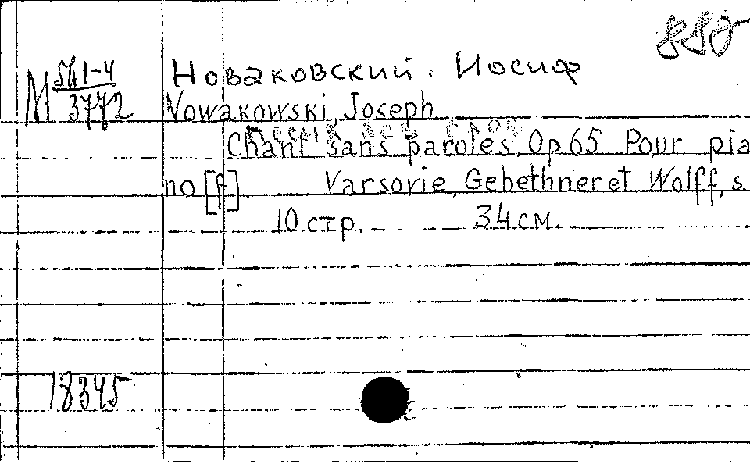 М 561-4
3772
Новаковский. Иосиф
Nowakowski, Joseph
Chant sans paroles. Op. 65 Pour pia
no [f] Varsovie, Gebethner et Wolff, s.
10 стр. 34 см.
18345